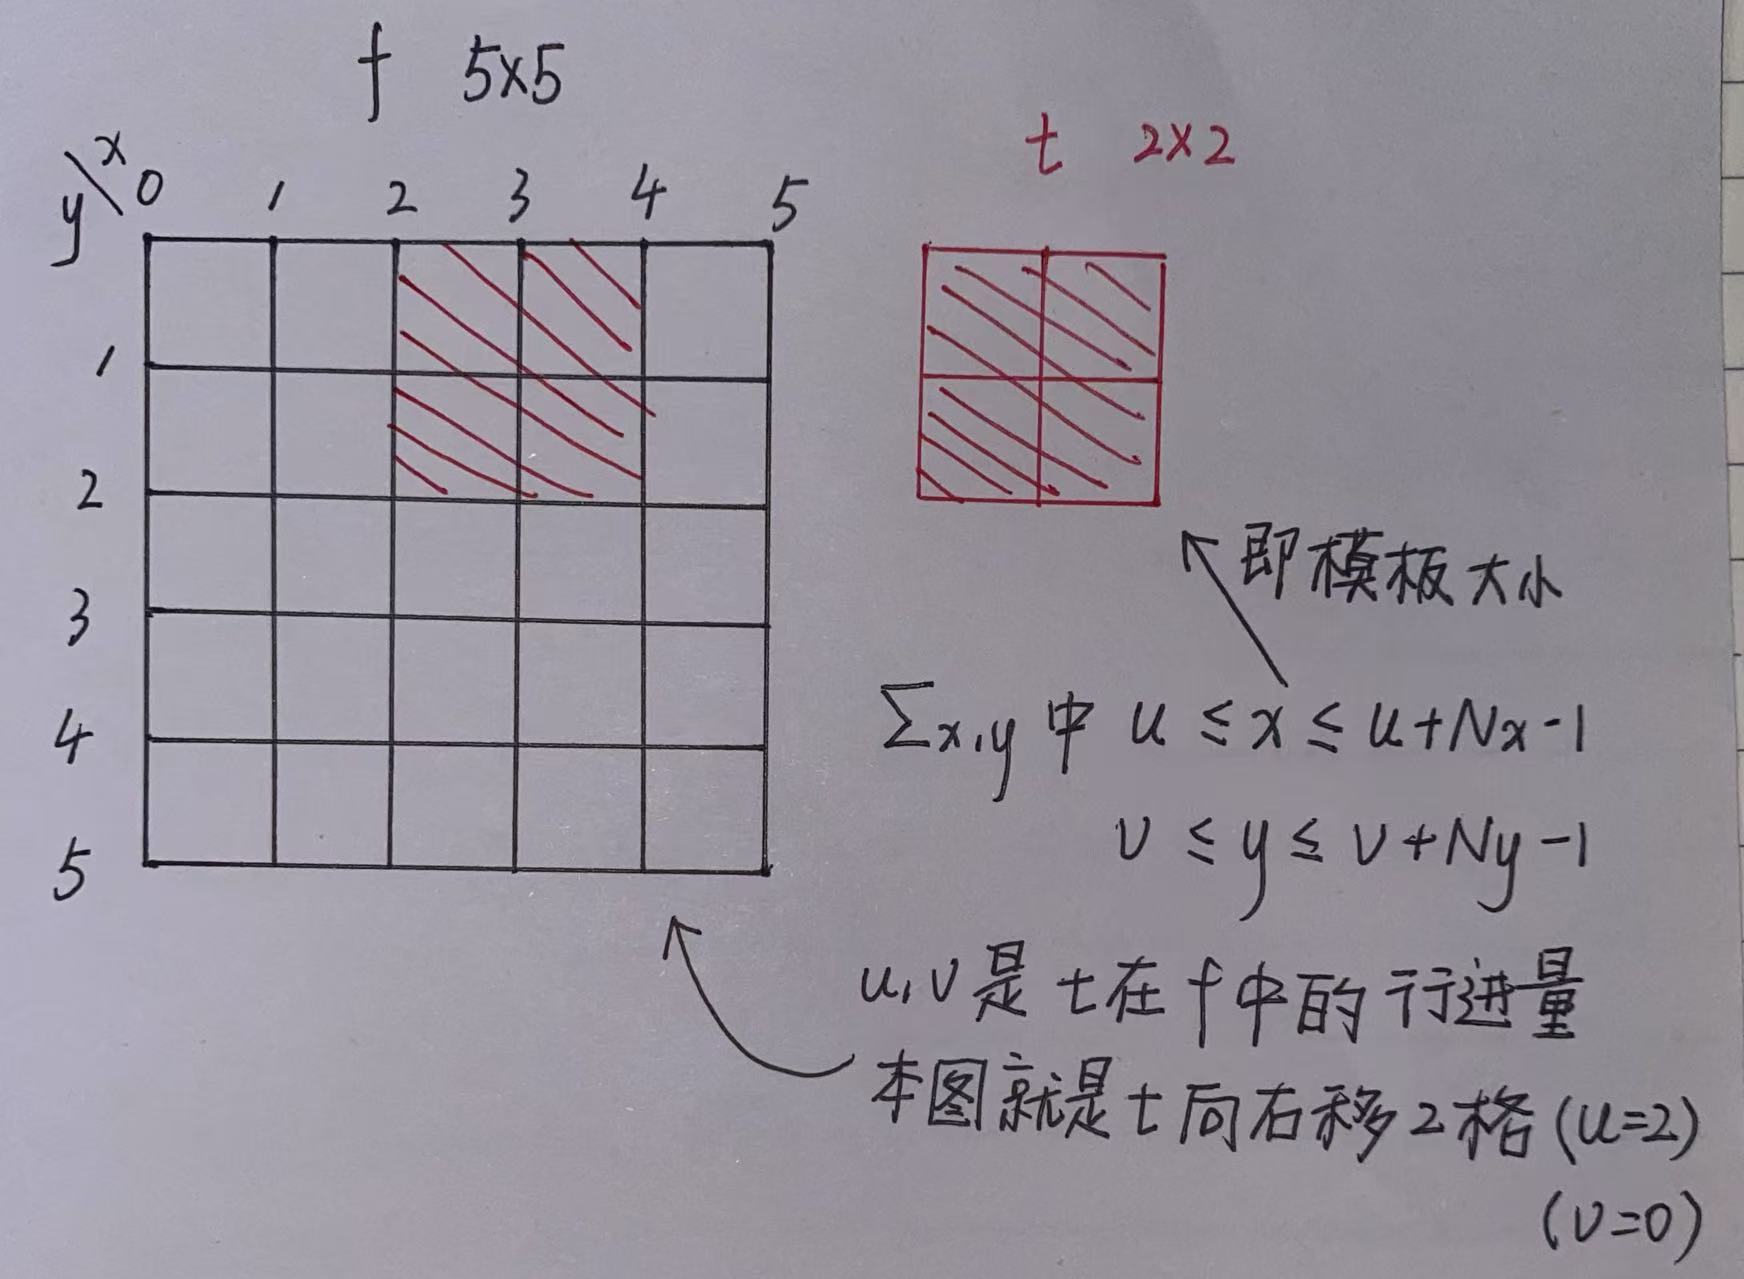 f 5×5
t 2×2
x
y
0 1 2 3 4 5
1
2
3
4
5
即模板大小
Σx,y 中 u ≤ x ≤ u+Nx-1
v ≤ y ≤ v+Ny-1
u,v是t在f中的行进量
本图就是t向右移2格(u=2)
(v=0)